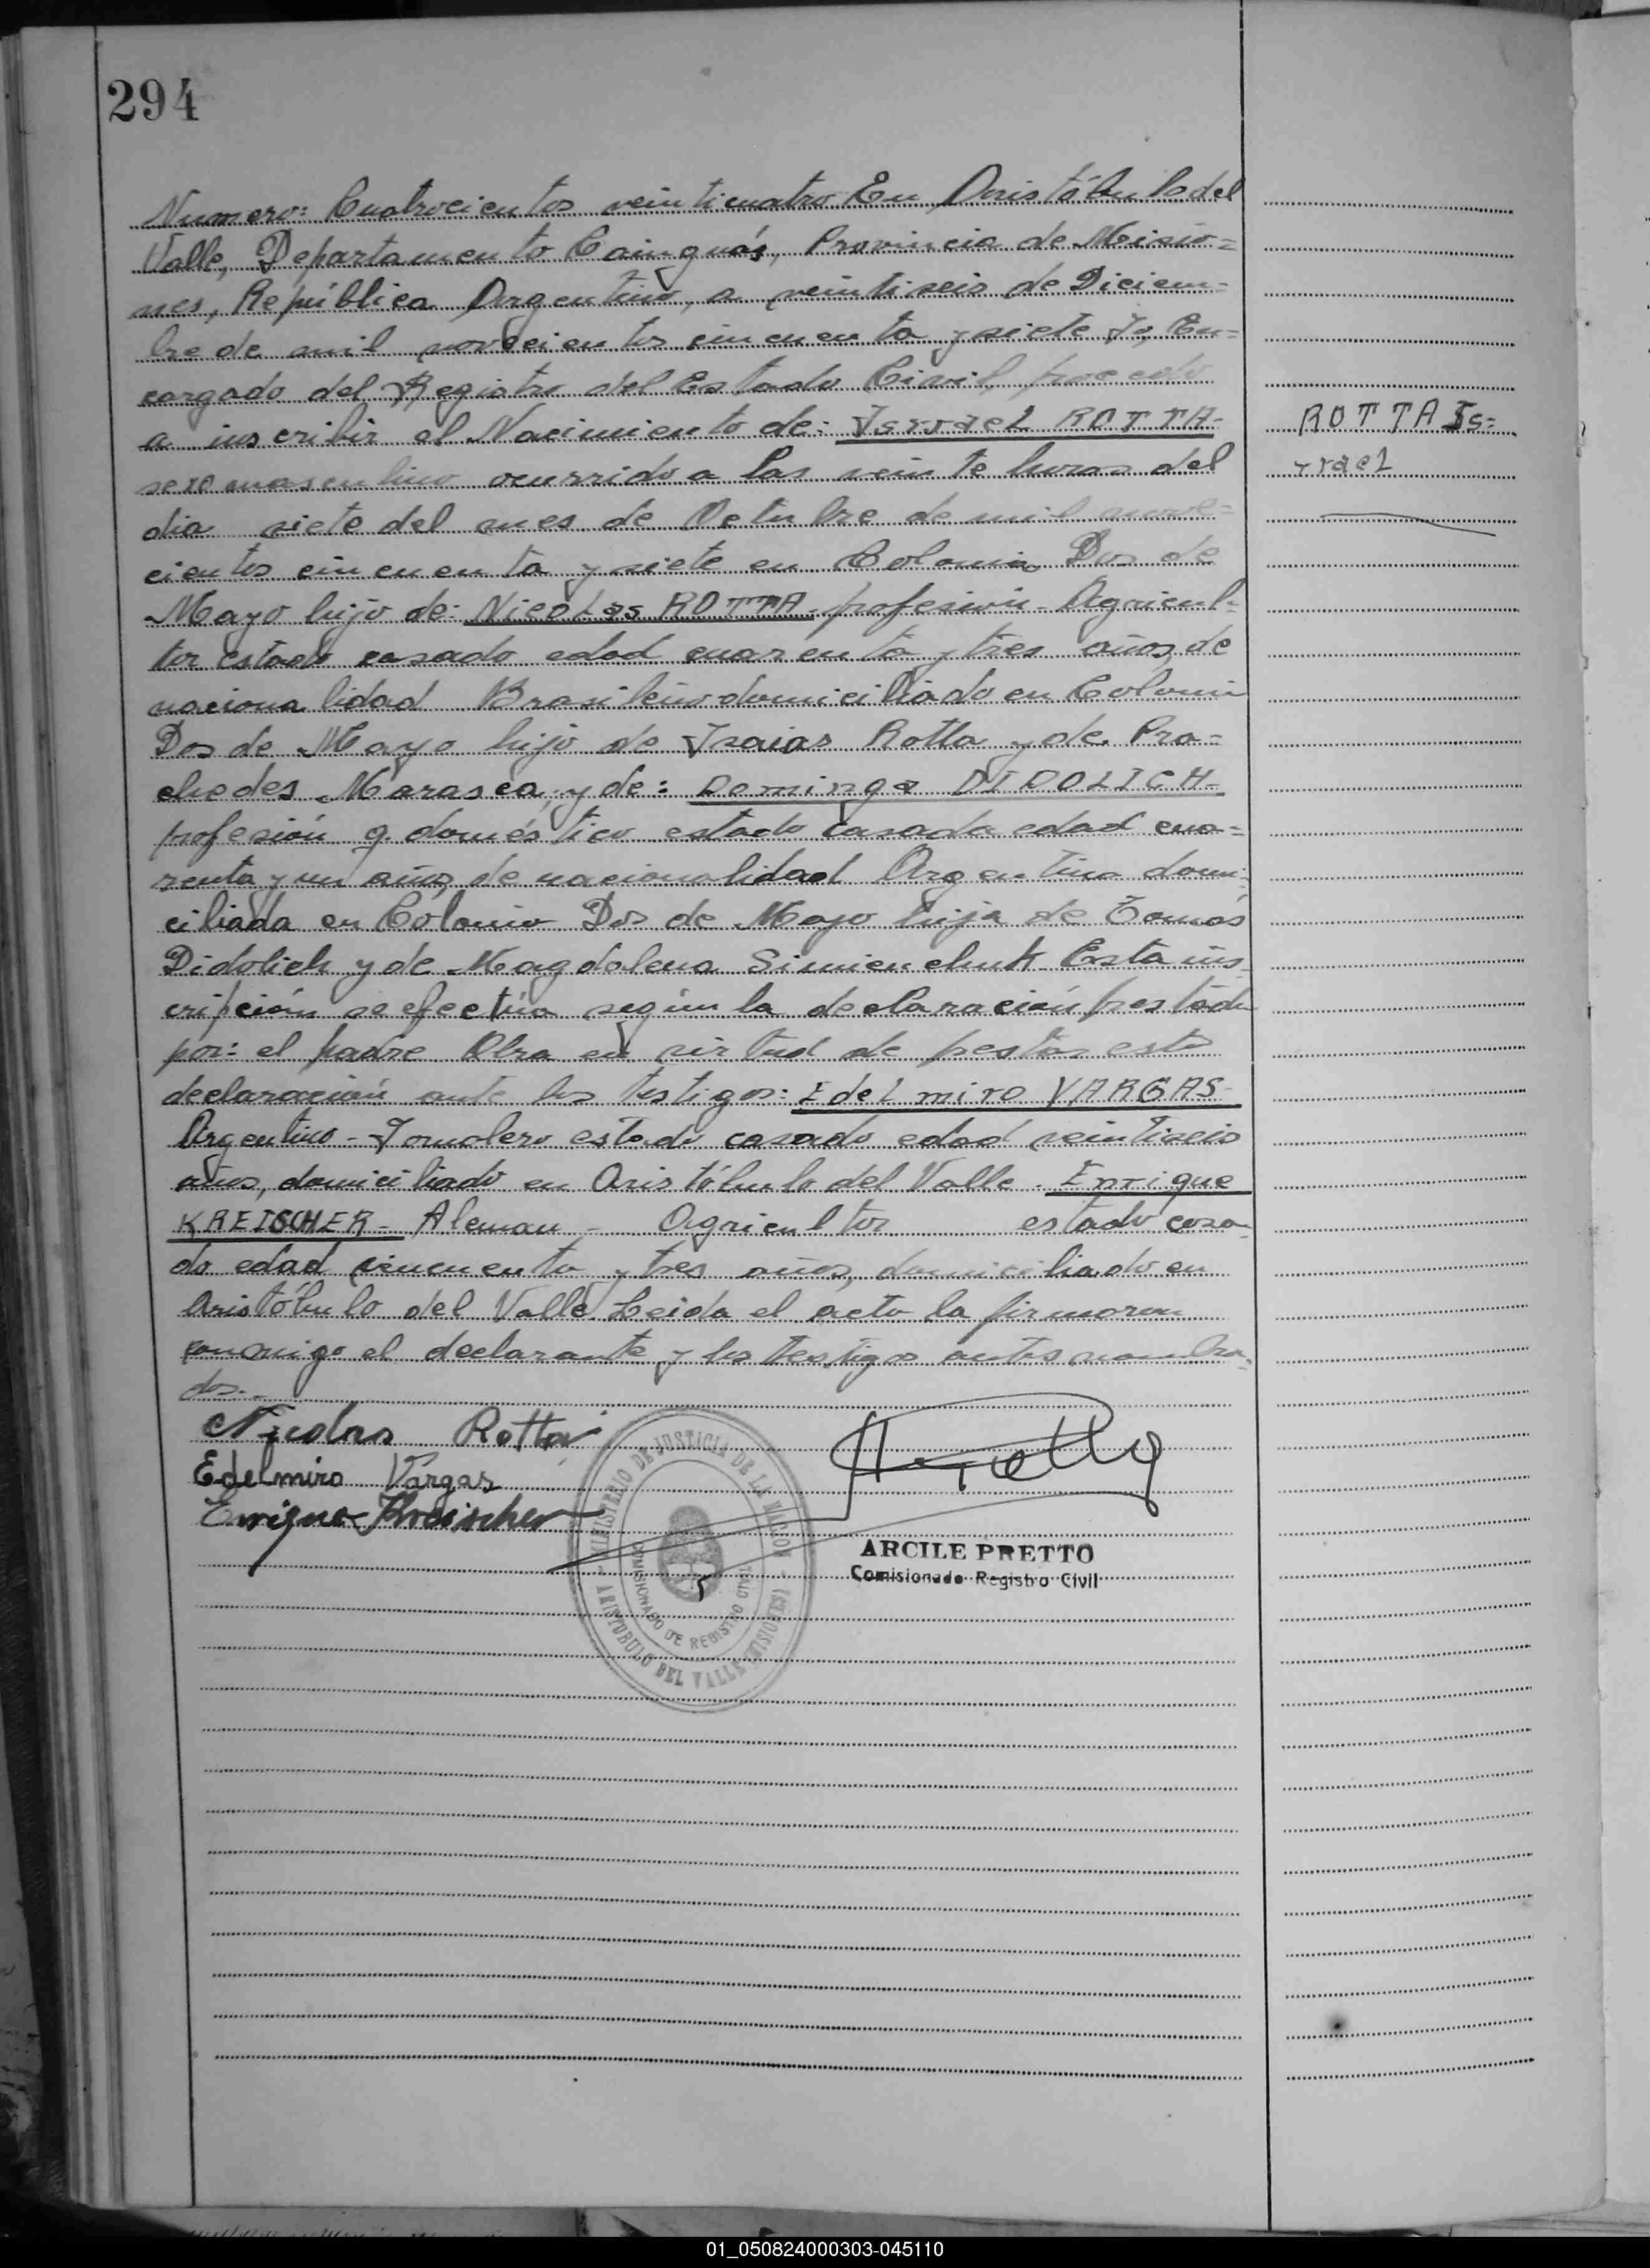 294
Numero: Cuatrocientos veinticuatro En Aristóbulo del
Valle, Departamento Cainguás, Provincia de Misio=
nes, República Argentina, a veintiseis de Diciem=
bre de mil novecientos cincuenta y siete Yo, En=
cargado del Registro del Estado Civil, procedo
a inscribir el Nacimiento de: Isrrael ROTTA-
ROTTA Is=
rrael
sexo masculino ocurrido a las veinte horas del
dia siete del mes de Octubre de mil nove=
cientos cincuenta y siete en Colonia Dos de
Mayo hijo de: Nicolas ROTTA- profesión- Agricul=
tor estado casado edad cuarenta y tres años, de
nacionalidad Brasileño domiciliado en Coloni
Dos de Mayo hijo de Isaias Rotta y de Pra=
chedes Marasca, y de: Dominga DIDOLICH-
profesión q. doméstico estado casada edad cua=
renta y un años, de nacionalidad Argentina domi=
ciliada en Colonia Dos de Mayo hija de Tomás
Didolich y de Magdalena Simienchuk Esta ins
cripción se efectúa según la declaración prestada
por: el padre Obra en virtud de prestar esta
declaración ante los testigos: Edelmiro VARGAS-
Argentino - Jornalero estado casado edad veintiseis
años, domiciliado en Aristóbulo del Valle. Enrique
KREISCHER- Aleman - Agricultor estado casa
do edad cincuenta y tres años, domiciliado en
Aristóbulo del Valle. Leida el acta la firmaron
conmigo el declarante y los testigos antes nombra=
dos.-
Nicolas Rotta
Edelmiro Vargas
Enrique Kreischer
MINISTERIO DE JUSTICIA DE LA NACION
COMISIONADO DE REGISTRO CIVIL
ARISTOBULO DEL VALLE (MISIONES)
ARCILE PRETTO
Comisionado Registro Civil
01_050824000303-045110